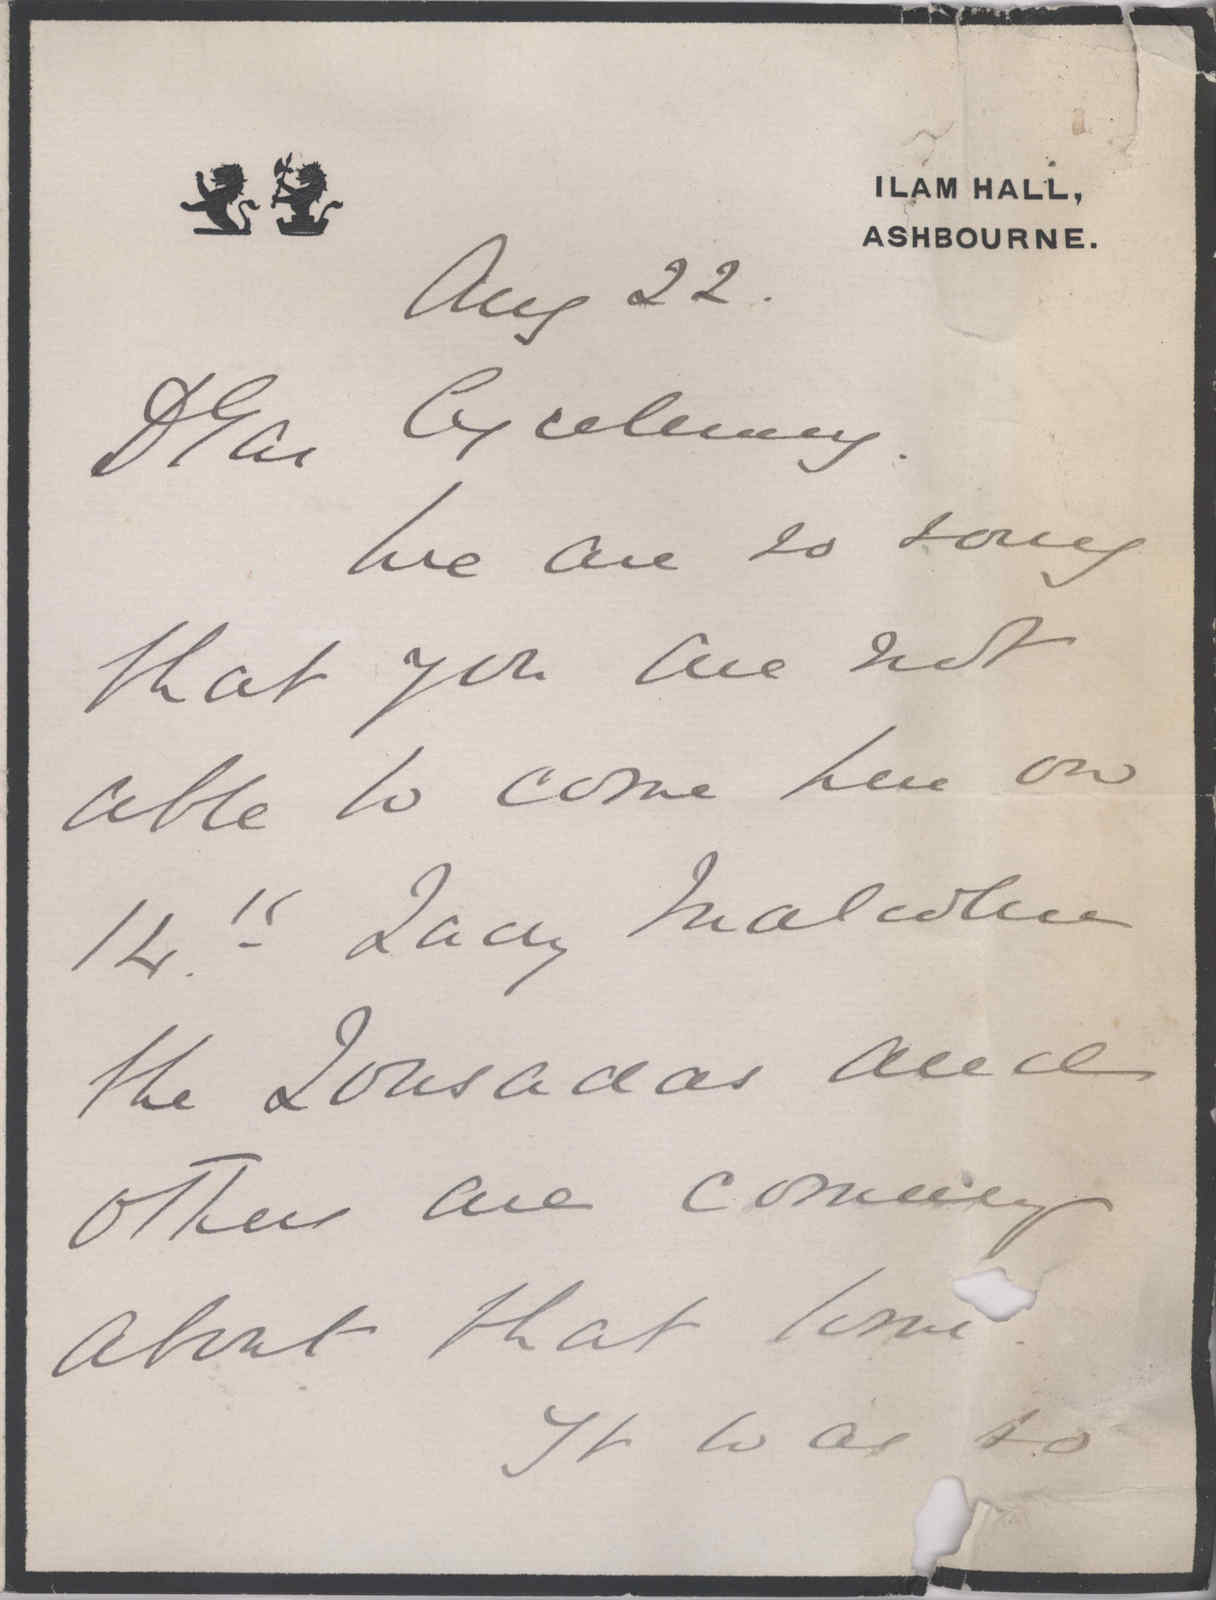 ILAM HALL,
ASHBOURNE.
Aug 22.
Dear Excellency.
We are so sorry
that you are not
able to come here on
14.th Lady Malcolm
the Lousadas and
others are coming
about that time.
It was so